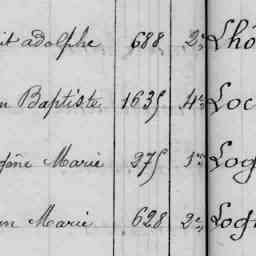 it adolphe 688 2e Lhô
n Baptiste 1635 4e Loc
gène Marie 975 1er Log
n Marie 628 2e Log